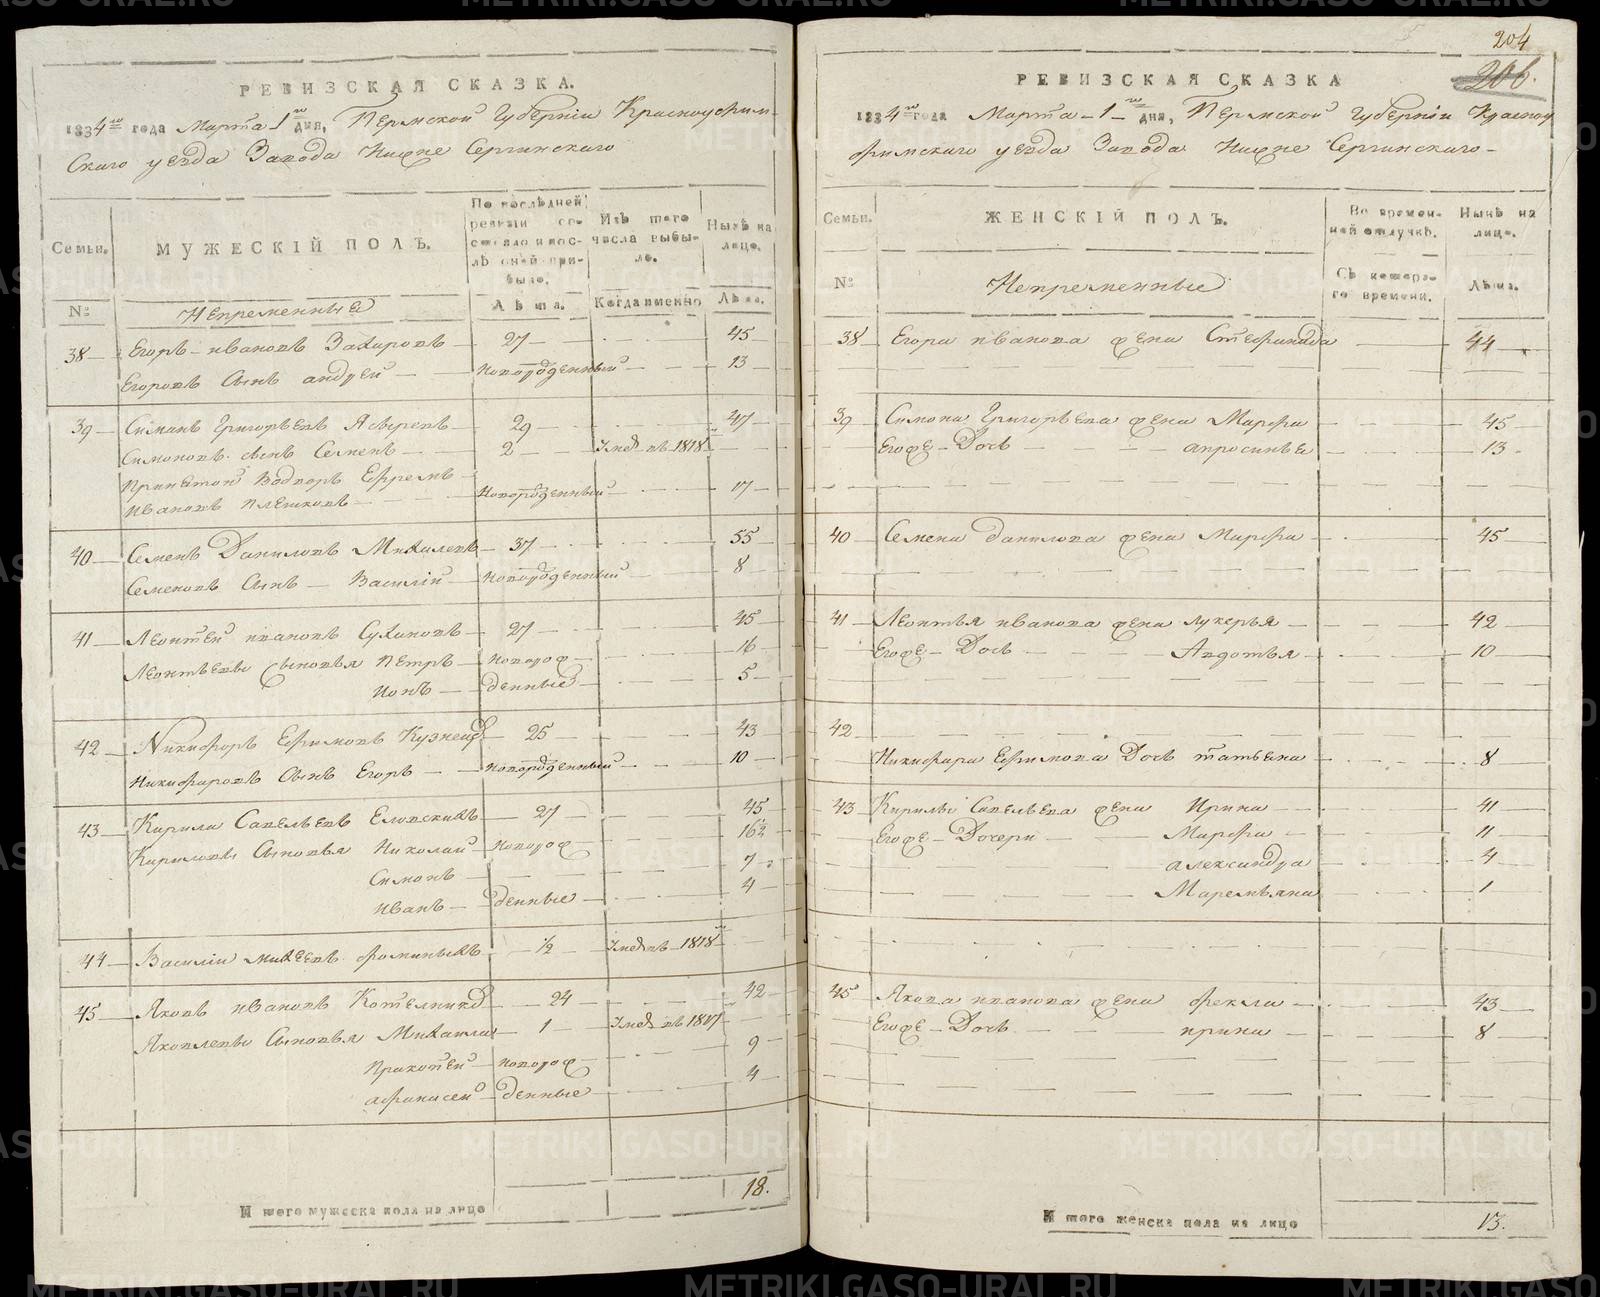 РЕВИЗСКАЯ СКАЗКА.
1834го года Марта 1го дня, Пермской Губернiи Красноуфим-
скаго уезда Завода Нижне Сергинскаго
Семьи. МУЖЕСКIЙ ПОЛЪ. По последней ревизiи состояло и после оной прибыло. Изъ того числа выбыло. Ныне на лицо.
№ Непременные Лета. Когда именно Лета.
38 Егоръ ивановъ Захаровъ 27 45
Егоровъ сынъ андрей новорожденный 13
39 Симанъ Григорьевъ 29 47
Симоновъ сынъ Семенъ 2 Умер въ 1818
Ефремъ
Ивановъ Плешковъ новорожденный 17
40 Семенъ Даниловъ Михалевъ 37 55
Семеновъ сынъ Василiй новорожденный 8
41 Леонтей ивановъ Сухановъ 27 45
Леонтьевы сыновья Петръ новорож 16
Ионъ денные 5
42 Никифоръ Ефимовъ Кузнец 25 43
Никифаровъ сынъ Егоръ новорожденный 10
43 Кирила Савельевъ Еловскихъ 27 45
Кириловы сыновья Николай новорож 16½
Симонъ 7
иванъ денные 4
44 Василiй михеевъ фоминыхъ ½ Умер въ 1818
45 Яковъ ивановъ Котельник 24 42
Яковлевы сыновья Михаила 1 Умер въ 1817
новорож 9
афанасей денные 4
Итого мужеска пола на лицо 18.
204
206.
РЕВИЗСКАЯ СКАЗКА
1834го года Марта 1 дня, Пермской Губернiи Красноу
фимскаго уезда Завода Нижне Сергинскаго
Семьи. ЖЕНСКIЙ ПОЛЪ. Во временной отлучке. Ныне на лицо.
№ Непременные Съ котораго времени. Лета.
38 Егора иванова жена Стефанида 44
39 Симона Григорьева жена Марфа 45
Егоже Дочь апросинья 13
40 Семена данилова жена Марфа 45
41 Леонтья иванова жена лукерья 42
Егоже Дочь Авдотья 10
42
Никифара Ефимова Дочь татьяна 8
43 Кирилы Савельева жена Ирина 41
Егоже Дочери Марфа 11
александра 4
Маремьяна 1
45 Якова иванова жена фекла 43
Егоже Дочь ирина 8
Итого женска пола на лицо 13.
METRIKI.GASO-URAL.RU